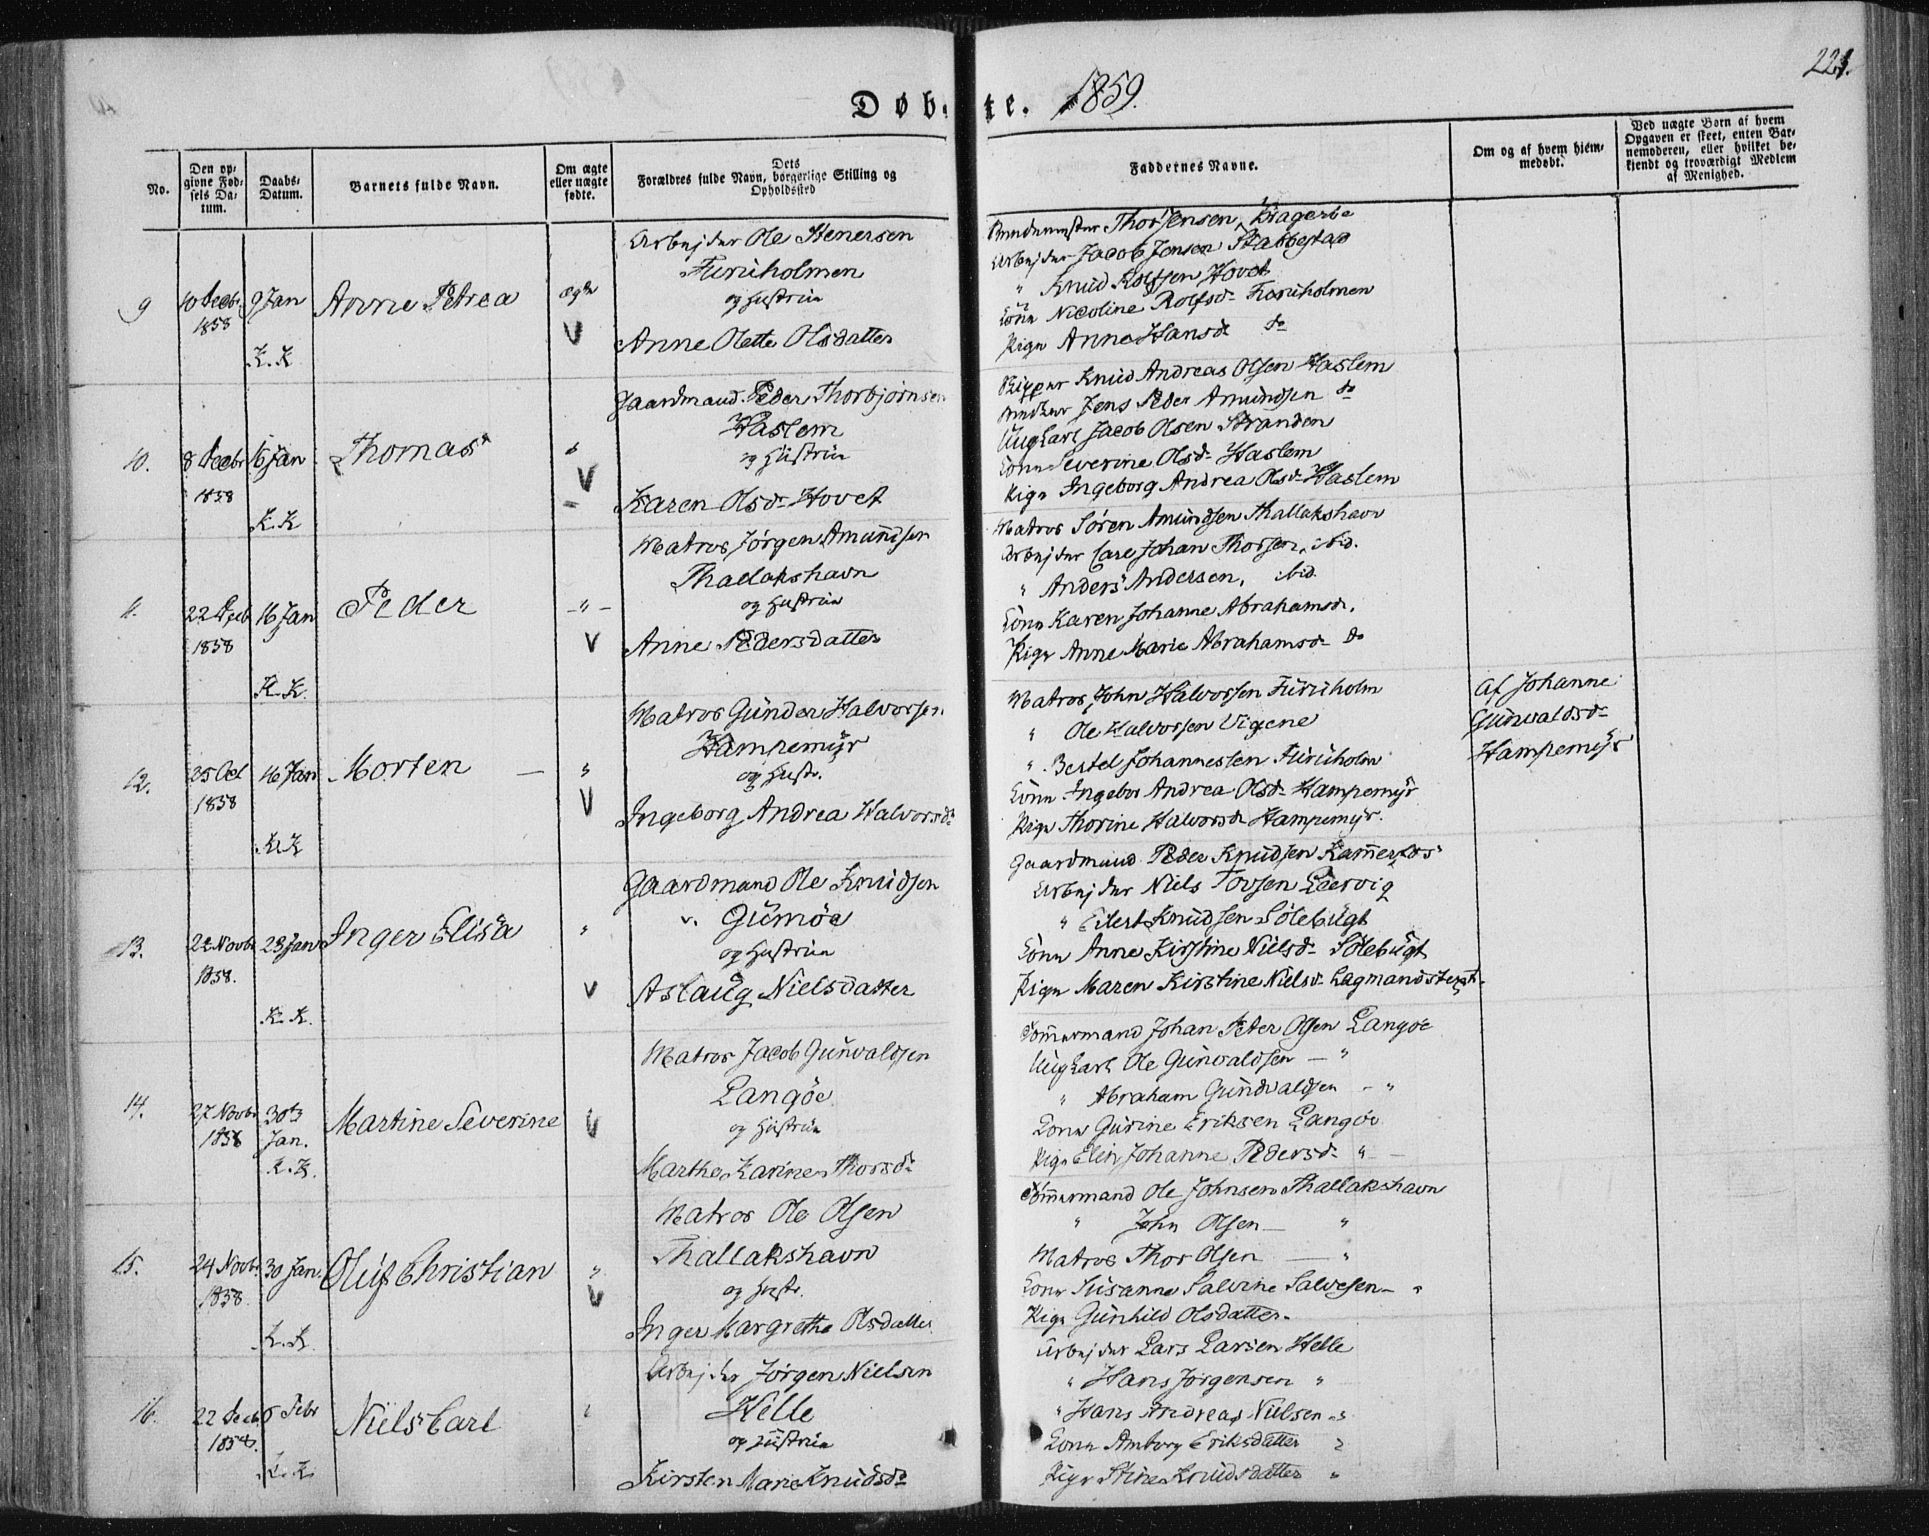 221.
Døbte. 1859.
No.
Den opgivne Fødsels Datum.
Daabs-Datum.
Barnets fulde Navn.
Om ægte eller uægte fødte.
Dets Forældres fulde Navn, borgerlige Stilling og Opholdssted
Faddernes Navne.
Om og af hvem hjemmedøbt.
Ved uægte Born af hvem Opgaven er skeet, enten Barnemoderen, eller hvilket bekjendt og troværdigt Medlem af Menighed.
9
10 Decbr 1858
9 Jan
K. K
Anne Petrea
ægte
V
Arbejder Ole Stenersen
Furuholmen
og Hustrue
Anne Olette Olsdatter
Thor Jensen, Kragerøe
Arbejder Jacob Jensen Stabbestad
" Knud Rolfsen Hovet
Kone Nicoline Rolfsd. Furuholmen
Pige Anne Hansd. do
10.
8 Decbr 1858
16 Jan
K. K
Thomas
V
Gaardmand Peder Thorbjørnsen
Haslem
og Hustrue
Karen Olsd. Hovet
Skipper Knud Andreas Olsen Haslem
Jens Peder Amundsen do
Ungkarl Jacob Olsen Stranden
Kone Severine Olsd. Haslem
Pige Ingeborg Andrea Olsd. Haslem
11.
22 Decb 1858
16 Jan
K. K.
Peder
- " -
V
Matros Jørgen Amundsen
Thallakshavn
og Hustrue
Anne Pedersdatter
Matros Søren Amundsen Thallakshavn
Arbejder Carl Johan Thorsen, ibid.
" Anders Andersen, ibid
Kone Karen Johanne Abrahamsd.
Pige Anne Marie Abrahamsd. do
12.
25 Oct 1858
16 Jan
K. K
Morten
"
V
Matros Gunder Halvorsen
Hampemyr
og Hustr.
Ingeborg Andrea Halvorsd.
Matros John Halvorsen Furuholm
" Ole Halvorsen Vigene
" Bertel Johannessen Furuholm
Kone Ingebor Andrea Olsd. Hampemyr
Pige Thorine Halvorsd. Hampemyr.
Af Johanne
Gunvaldsd.
Hampemyr
13.
22 Novbr 1858.
23 Jan
K. K.
Inger Elisa
"
V
Gaardmand Ole Knudsen
v. Gumøe
og Hustrue
Aslaug Nielsdatter
Gaardmand Peder Knudsen Kammerfos
Arbejder Niels Tovsen Leervig
" Eilert Knudsen Sølebugt
Kone Anne Kirstine Nielsd. Sølebugt
Pige Maren Kirstine Nielsd.
14.
27 Novbr 1858
30te Jan.
K. K.
Martine Severine
"
V
Matros Jacob Gunvaldsen
Langøe
og Hustrue
Marthe Karine Thorsd.
Tømmermand Johan Peter Olsen Langøe
Ungkarl Ole Gunvaldsen — "
" Abraham Gundvaldsen - "
Kone Gurine Eriksen Langøe
Pige Elen Johanne Pedersd. "
15.
24 Novbr. 1858.
30 Jan.
K. K.
Oluf Christian
"
V
Matros Ole Olsen
Thallakshavn
og Hustr.
Inger Margrethe Olsdatter
Tømmermand Ole Johnsen Thallakshavn
" John Olsen — "
Matros Thor Olsen — "
Kone Susanne Salvine Salvesen — "
Pige Gunhild Olsdatter.
16.
22 Decb 1858.
6 Febr
K. K.
Niels Carl
"
Arbejder Jørgen Nielsen
Helle
og Hustrue
Kirsten Marie Knudsd.
Arbejder Lars Larsen Helle
" Hans Jørgensen "
" Hans Andreas Nielsen "
Kone Amborg Eriksdatter "
Pige Stine Knudsdatter "